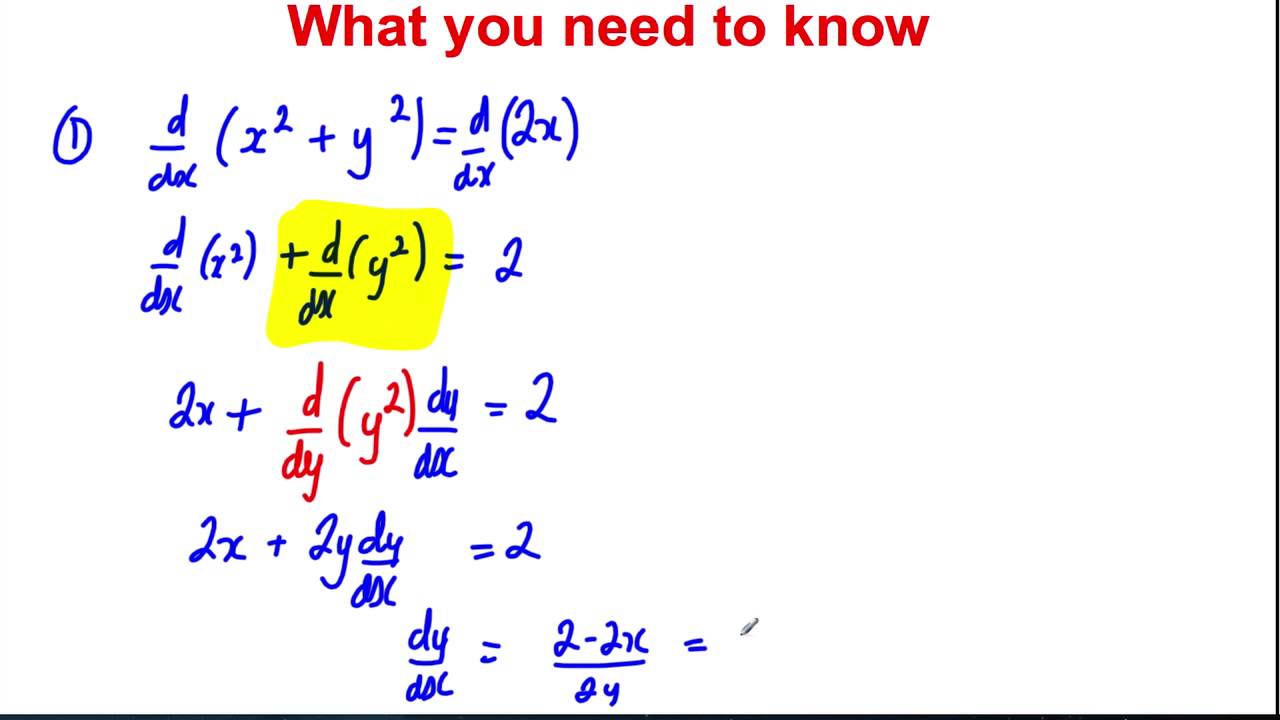 What you need to know
① d/dx (x² + y²) = d/dx (2x)
d/dx (x²) + d/dx (y²) = 2
2x + d/dy (y²) dy/dx = 2
2x + 2y dy/dx = 2
dy/dx = 2-2x/2y =